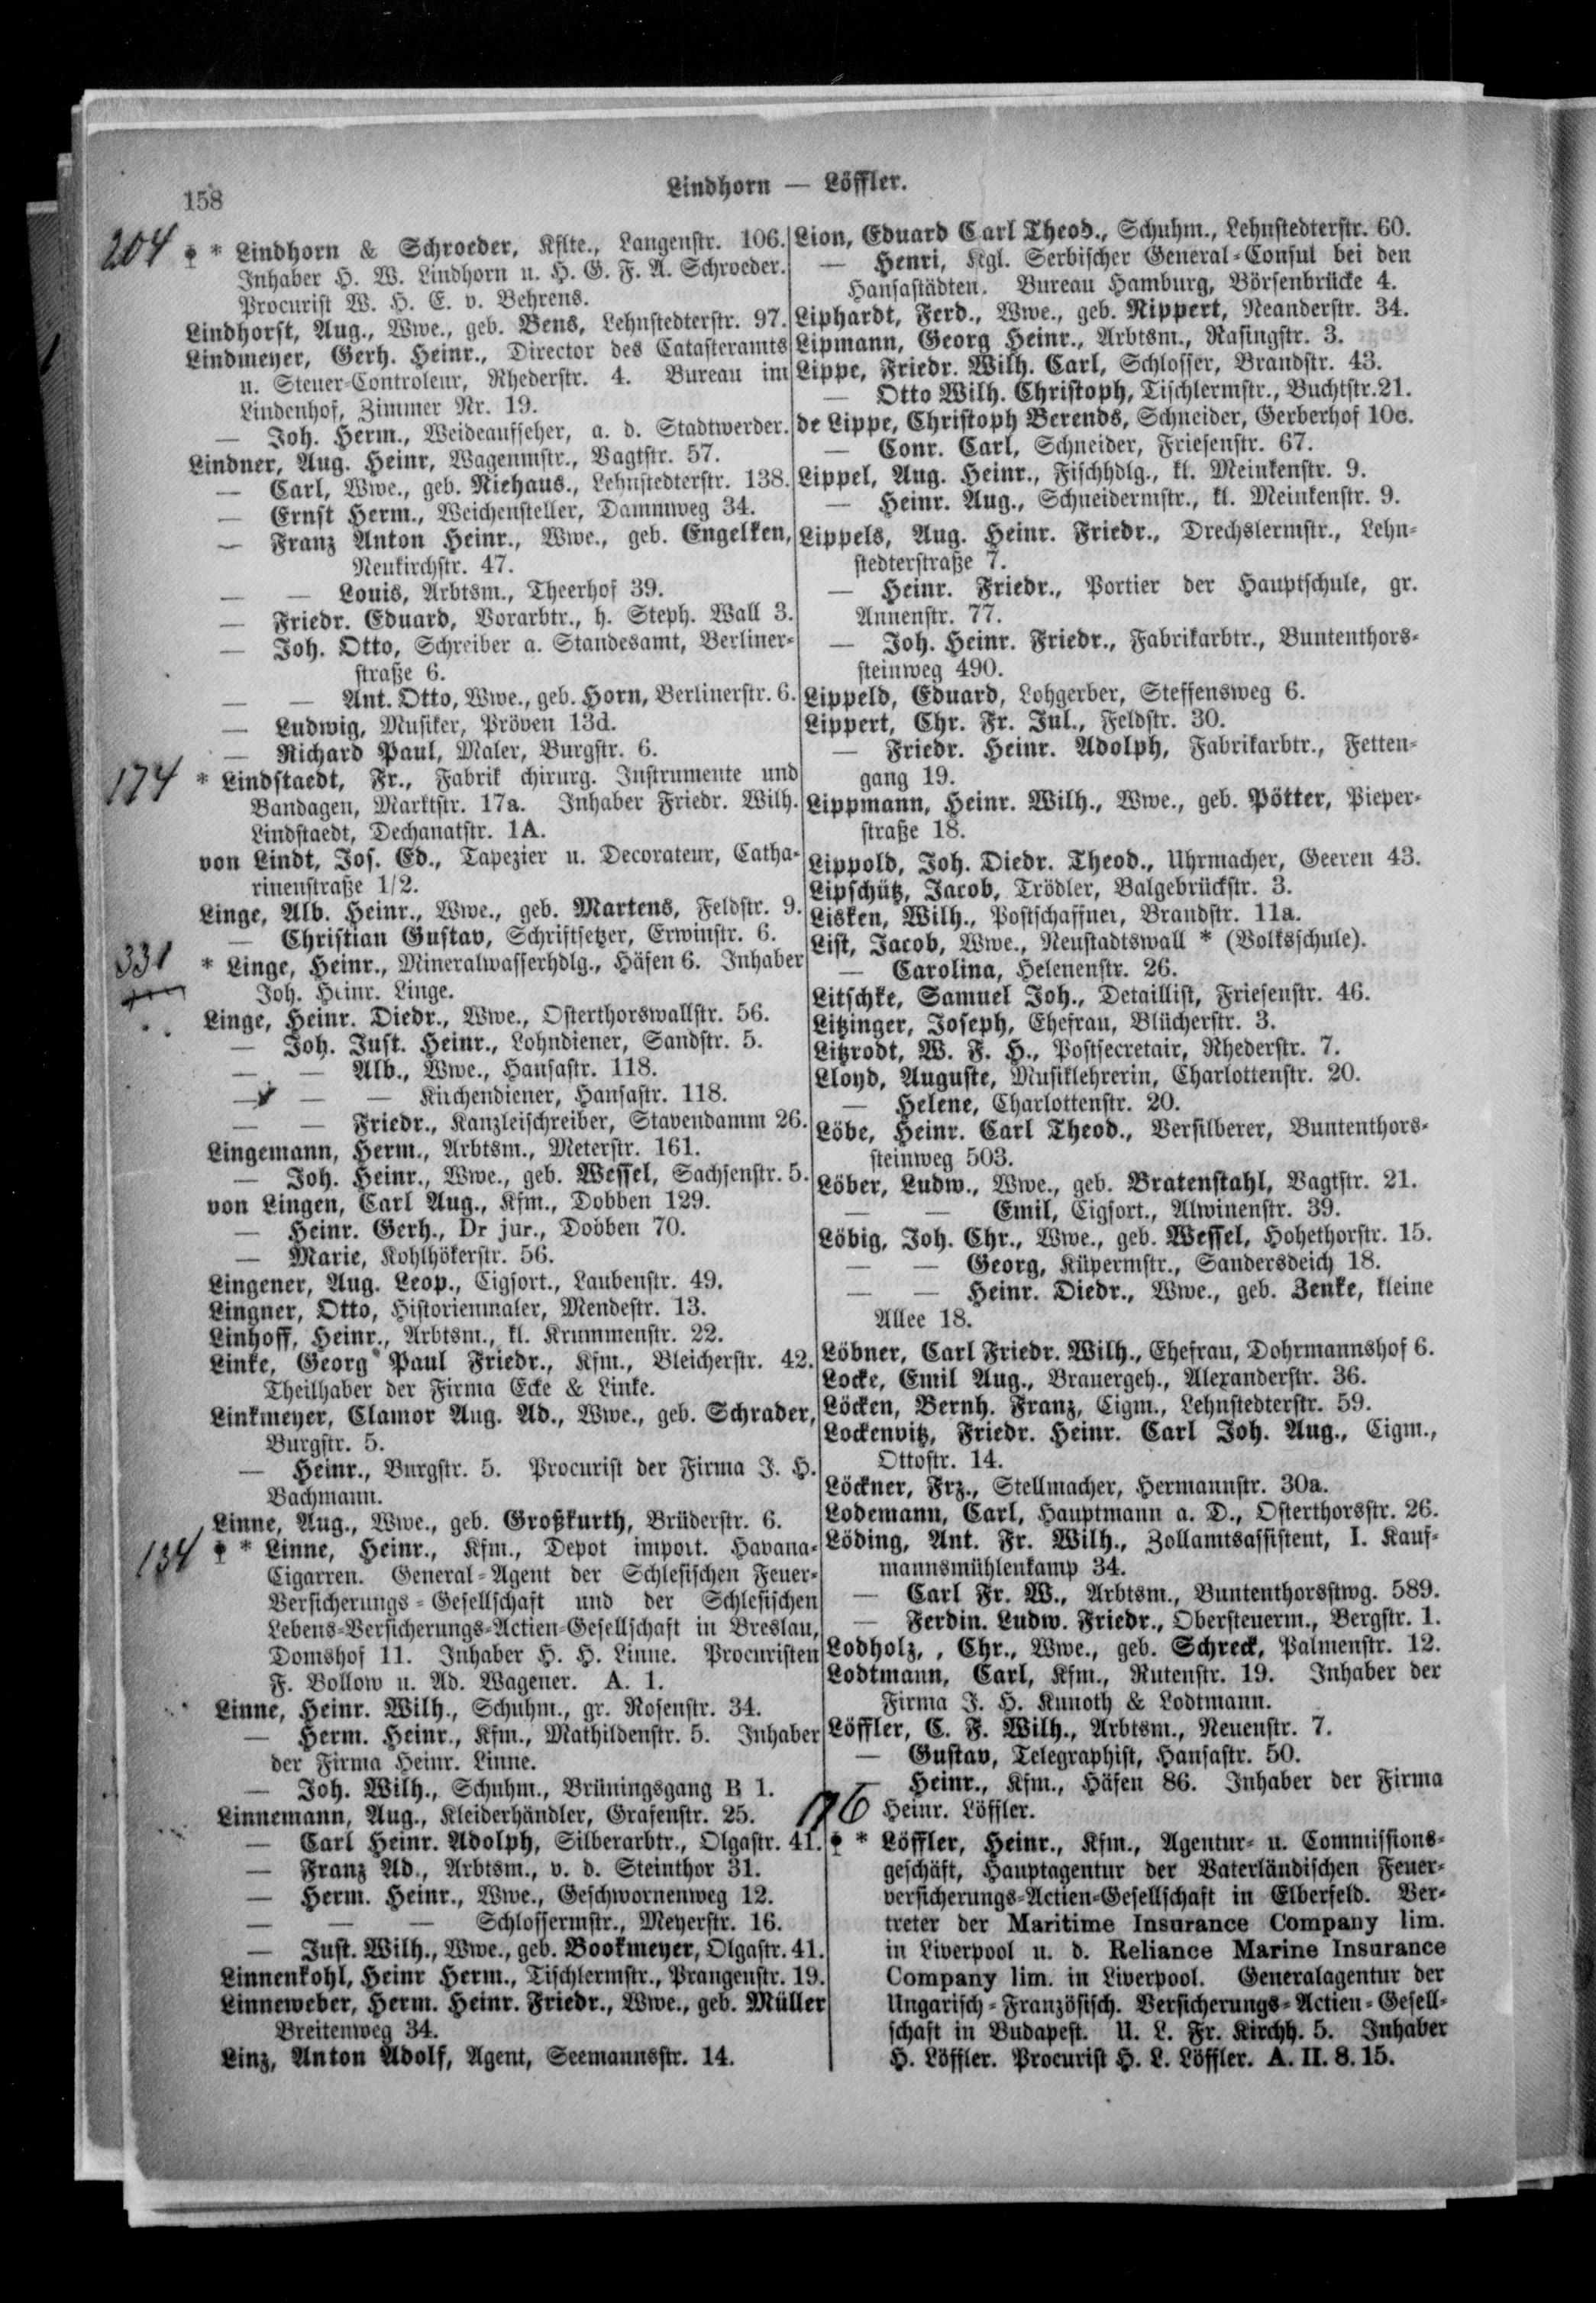 158
Lindhorn — Löffler.
204
* Lindhorn & Schroeder, Kflte., Langenstr. 106.
Inhaber H. W. Lindhorn u. H. G. F. A. Schroeder.
Procurist W. H. E. v. Behrens.
Lindhorst, Aug., Wwe., geb. Bens, Lehnstedterstr. 97.
Lindmeyer, Gerh. Heinr., Director des Catasteramts
u. Steuer-Controleur, Rhederstr. 4. Bureau im
Lindenhof, Zimmer Nr. 19.
— Joh. Herm., Weideaufseher, a. d. Stadtwerder.
Lindner, Aug. Heinr, Wagenmstr., Vagtstr. 57.
— Carl, Wwe., geb. Niehaus., Lehnstedterstr. 138.
— Ernst Herm., Weichensteller, Dammweg 34.
— Franz Anton Heinr., Wwe., geb. Engelken,
Neukirchstr. 47.
— — Louis, Arbtsm., Theerhof 39.
— Friedr. Eduard, Vorarbtr., h. Steph. Wall 3.
— Joh. Otto, Schreiber a. Standesamt, Berliner-
straße 6.
— — Ant. Otto, Wwe., geb. Horn, Berlinerstr. 6.
— Ludwig, Musiker, Pröven 13d.
— Richard Paul, Maler, Burgstr. 6.
174
* Lindstaedt, Fr., Fabrik chirurg. Instrumente und
Bandagen, Marktstr. 17a. Inhaber Friedr. Wilh.
Lindstaedt, Dechanatstr. 1A.
von Lindt, Jos. Ed., Tapezier u. Decorateur, Catha-
rinenstraße 1/2.
Linge, Alb. Heinr., Wwe., geb. Martens, Feldstr. 9.
— Christian Gustav, Schriftsetzer, Erwinstr. 6.
331
* Linge, Heinr., Mineralwasserhdlg., Häfen 6. Inhaber
Joh. Heinr. Linge.
Linge, Heinr. Diedr., Wwe., Osterthorswallstr. 56.
— Joh. Just. Heinr., Lohndiener, Sandstr. 5.
— — Alb., Wwe., Hansastr. 118.
— — — Kirchendiener, Hansastr. 118.
— — Friedr., Kanzleischreiber, Stavendamm 26.
Lingemann, Herm., Arbtsm., Meterstr. 161.
— Joh. Heinr., Wwe., geb. Wessel, Sachsenstr. 5.
von Lingen, Carl Aug., Kfm., Dobben 129.
— Heinr. Gerh., Dr jur., Dobben 70.
— Marie, Kohlhökerstr. 56.
Lingener, Aug. Leop., Cigsort., Laubenstr. 49.
Lingner, Otto, Historienmaler, Mendestr. 13.
Linhoff, Heinr., Arbtsm., kl. Krummenstr. 22.
Linke, Georg Paul Friedr., Kfm., Bleicherstr. 42.
Theilhaber der Firma Ecke & Linke.
Linkmeyer, Clamor Aug. Ad., Wwe., geb. Schrader,
Burgstr. 5.
— Heinr., Burgstr. 5. Procurist der Firma J. H.
Bachmann.
Linne, Aug., Wwe., geb. Großkurth, Brüderstr. 6.
134
* Linne, Heinr., Kfm., Depot import. Havana-
Cigarren. General-Agent der Schlesischen Feuer-
Versicherungs-Gesellschaft und der Schlesischen
Lebens-Versicherungs-Actien-Gesellschaft in Breslau,
Domshof 11. Inhaber H. H. Linne. Procuristen
F. Vollow u. Ad. Wagener. A. 1.
Linne, Heinr. Wilh., Schuhm., gr. Rosenstr. 34.
— Herm. Heinr., Kfm., Mathildenstr. 5. Inhaber
der Firma Heinr. Linne.
— Joh. Wilh., Schuhm., Brüningsgang B 1.
Linnemann, Aug., Kleiderhändler, Grafenstr. 25.
— Carl Heinr. Adolph, Silberarbtr., Olgastr. 41.
— Franz Ad., Arbtsm., v. d. Steinthor 31.
— Herm. Heinr., Wwe., Geschwornenweg 12.
— — — Schlossermstr., Meyerstr. 16.
— Just. Wilh., Wwe., geb. Bookmeyer, Olgastr. 41.
Linnenkohl, Heinr Herm., Tischlermstr., Prangenstr. 19.
Linneweber, Herm. Heinr. Friedr., Wwe., geb. Müller
Breitenweg 34.
Linz, Anton Adolf, Agent, Seemannsstr. 14.
Lion, Eduard Carl Theod., Schuhm., Lehnstedterstr. 60.
— Henri, Kgl. Serbischer General-Consul bei den
Hansastädten. Bureau Hamburg, Börsenbrücke 4.
Liphardt, Ferd., Wwe., geb. Nippert, Neanderstr. 34.
Lipmann, Georg Heinr., Arbtsm., Rasingstr. 3.
Lippe, Friedr. Wilh. Carl, Schlosser, Brandstr. 43.
— Otto Wilh. Christoph, Tischlermstr., Buchtstr. 21.
de Lippe, Christoph Berends, Schneider, Gerberhof 10c.
— Conr. Carl, Schneider, Friesenstr. 67.
Lippel, Aug. Heinr., Fischhdlg., kl. Meinkenstr. 9.
— Heinr. Aug., Schneidermstr., kl. Meinkenstr. 9.
Lippels, Aug. Heinr. Friedr., Drechslermstr., Lehn-
stedterstraße 7.
— Heinr. Friedr., Portier der Hauptschule, gr.
Annenstr. 77.
— Joh. Heinr. Friedr., Fabrikarbtr., Buntenthors-
steinweg 490.
Lippeld, Eduard, Lohgerber, Steffensweg 6.
Lippert, Chr. Fr. Jul., Feldstr. 30.
— Friedr. Heinr. Adolph, Fabrikarbtr., Fetten-
gang 19.
Lippmann, Heinr. Wilh., Wwe., geb. Pötter, Pieper-
straße 18.
Lippold, Joh. Diedr. Theod., Uhrmacher, Geeren 43.
Lipschütz, Jacob, Trödler, Balgebrückstr. 3.
Lisken, Wilh., Postschaffner, Brandstr. 11a.
List, Jacob, Wwe., Neustadtswall * (Volksschule).
— Carolina, Helenenstr. 26.
Litschke, Samuel Joh., Detaillist, Friesenstr. 46.
Litzinger, Joseph, Ehefrau, Blücherstr. 3.
Litzrodt, W. F. H., Postsecretair, Rhederstr. 7.
Lloyd, Auguste, Musiklehrerin, Charlottenstr. 20.
— Helene, Charlottenstr. 20.
Löbe, Heinr. Carl Theod., Versilberer, Buntenthors-
steinweg 503.
Löber, Ludw., Wwe., geb. Bratenstahl, Vagtstr. 21.
— — Emil, Cigsort., Alwinenstr. 39.
Löbig, Joh. Chr., Wwe., geb. Wessel, Hohethorstr. 15.
— — Georg, Küpermstr., Sandersdeich 18.
— — Heinr. Diedr., Wwe., geb. Zenke, kleine
Allee 18.
Löbner, Carl Friedr. Wilh., Ehefrau, Dohrmannshof 6.
Locke, Emil Aug., Brauergeh., Alexanderstr. 36.
Löcken, Bernh. Franz, Cigm., Lehnstedterstr. 59.
Lockenvitz, Friedr. Heinr. Carl Joh. Aug., Cigm.,
Ottostr. 14.
Löckner, Frz., Stellmacher, Hermannstr. 30a.
Lodemann, Carl, Hauptmann a. D., Osterthorsstr. 26.
Löding, Ant. Fr. Wilh., Zollamtsassistent, I. Kauf-
mannsmühlenkamp 34.
— Carl Fr. W., Arbtsm., Buntenthorsstwg. 589.
— Ferdin. Ludw. Friedr., Obersteuerm., Bergstr. 1.
Lodholz, , Chr., Wwe., geb. Schreck, Palmenstr. 12.
Lodtmann, Carl, Kfm., Rutenstr. 19. Inhaber der
Firma J. H. Kunoth & Lodtmann.
Löffler, C. F. Wilh., Arbtsm., Neuenstr. 7.
— Gustav, Telegraphist, Hansastr. 50.
— Heinr., Kfm., Häfen 86. Inhaber der Firma
Heinr. Löffler.
176
* Löffler, Heinr., Kfm., Agentur- u. Commissions-
geschäft, Hauptagentur der Vaterländischen Feuer-
versicherungs-Actien-Gesellschaft in Elberfeld. Ver-
treter der Maritime Insurance Company lim.
in Liverpool u. d. Reliance Marine Insurance
Company lim. in Liverpool. Generalagentur der
Ungarisch-Französisch. Versicherungs-Actien-Gesell-
schaft in Budapest. U. L. Fr. Kirchh. 5. Inhaber
H. Löffler. Procurist H. L. Löffler. A. II. 8. 15.